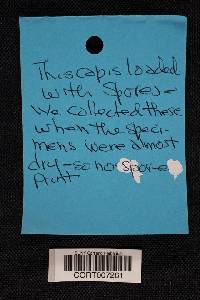 This cap is loaded
with spores -
We collected these
when the speci-
mens were almost
dry - so no spore
Print
CORT007261